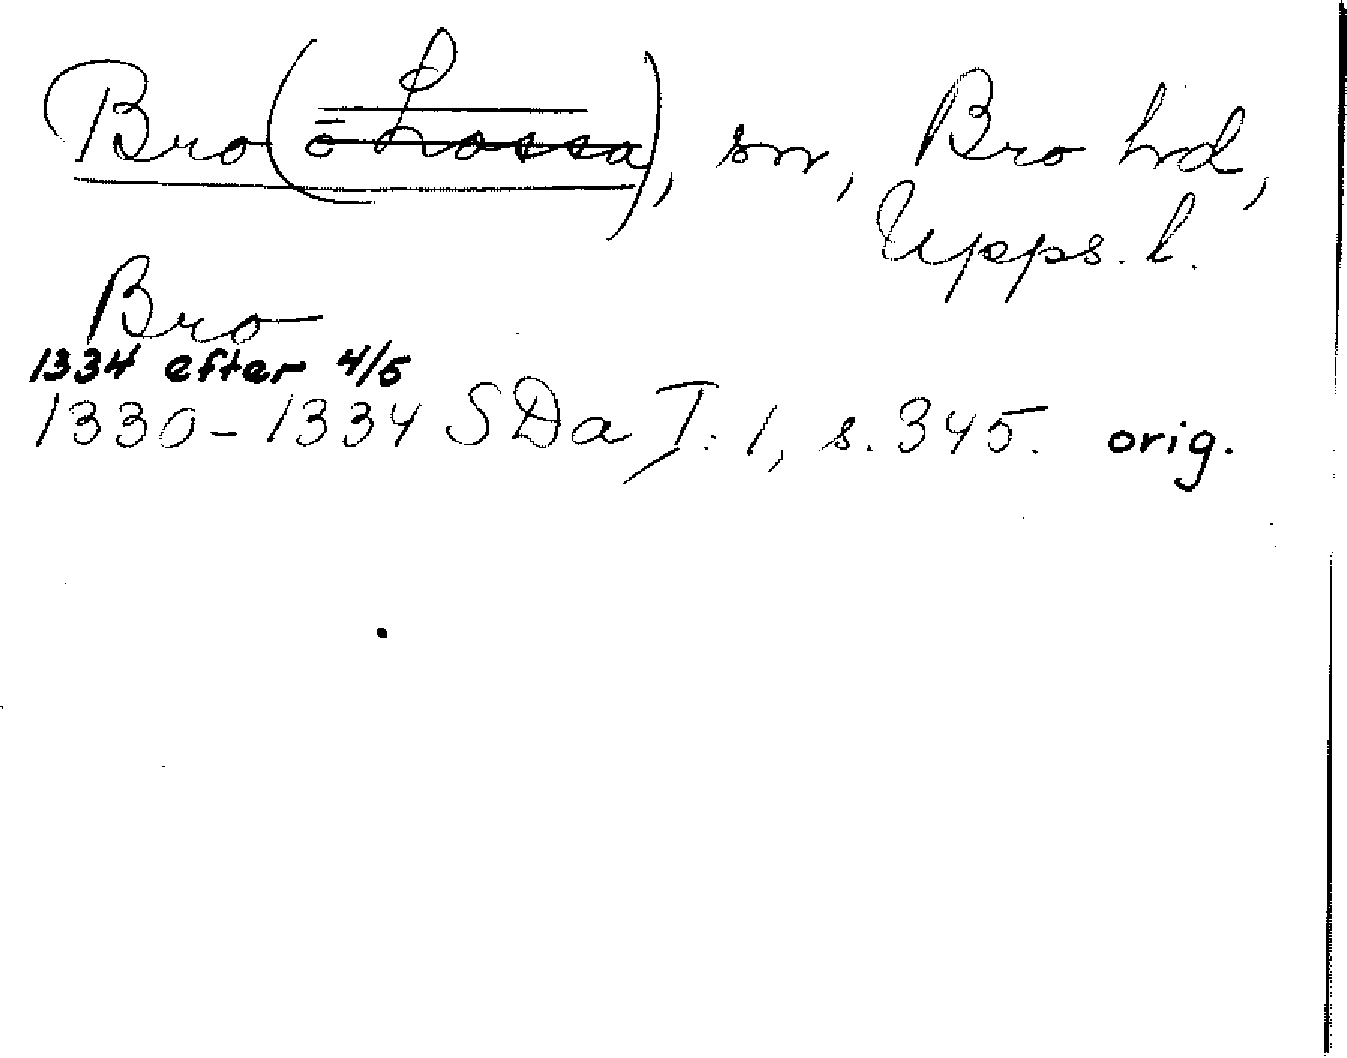 Bro (o Lossa), sn, Bro hrd,
Upps. l.
Bro
1334 efter 4/5
1330-1334 SDa I:1, s. 345. orig.